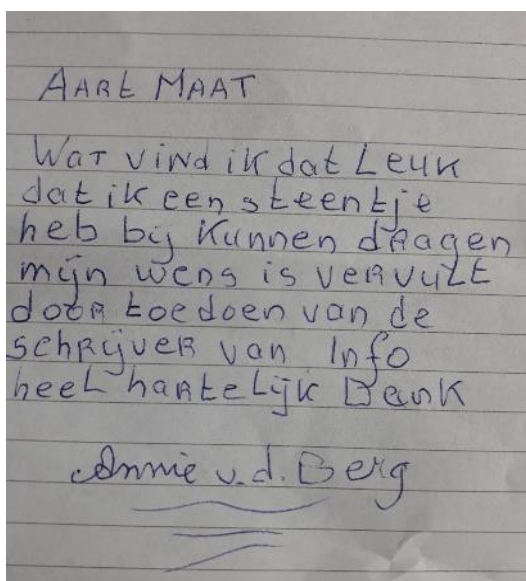 AARt MAAT
WAT vind ik dat Leuk
dat ik een steentje
heb bij kunnen dRagen
mijn wens is veRvuLt
dooR toedoen van de
schRijveR van Info
heeL haRteLijk Dank
Annie v.d. Berg